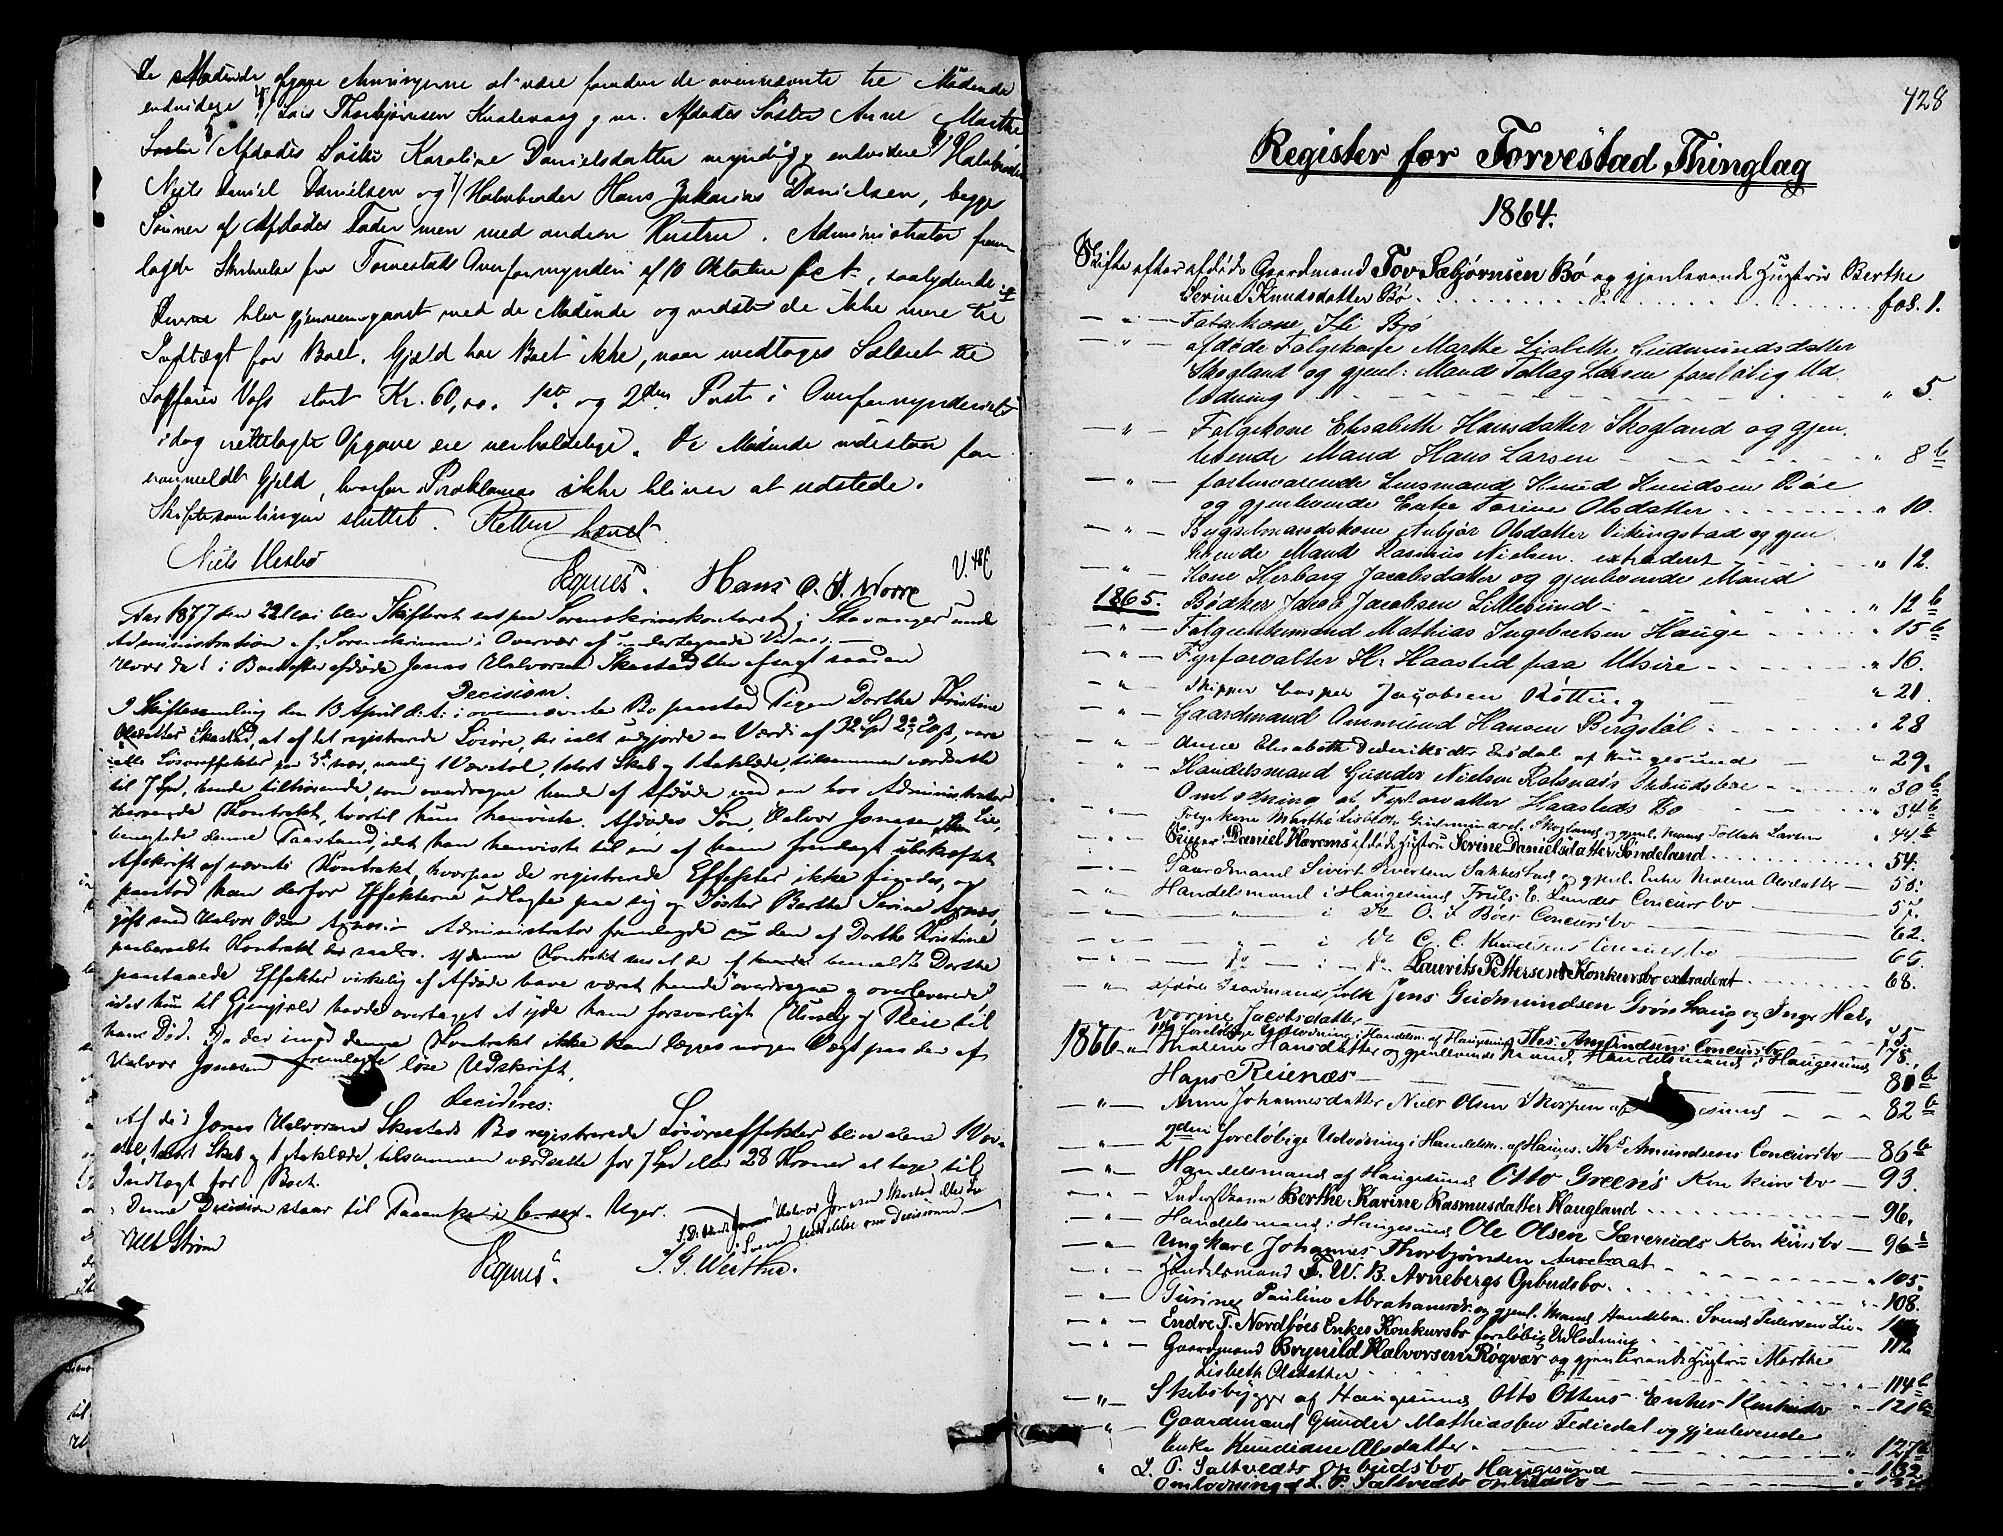 De Mødende opgave Arvingerne at være foruden de ovennævnte tre Mødende
endvidere 4/ Lars Thorbjørnsen Kvalevaag g. m. Afdødes Søster Anne Marthe
5/ Afdødes Søster Karoline Danielsdatter myndig, endvidere 6/ Halvbroder
Niels Daniel Danielsen og 7/ Halvbroder Hans Zakarias Danielsen, begge
Sønner af Afdødes Fader men med anden Hustru. Administrator frem-
lagde Skrivelse fra Torvestads Overformynderi af 10 Oktober, saalydende
Denne blev gjennemgaaet med de Mødende og vidste de ikke mere til
Indtægt for Boet. Gjæld har Boet ikke, naar undtages Salæret til
Kr. 60,00. 1ste og 2den Post i Overformynderiets
idag fremlagte Opgave ere uerholdelige. De Mødende indestaar for
uanmeldt Gjæld, hvorfor Proklama ikke bliver at udstede.
Skiftesamlingen sluttet. Retten hævet.
Niels Vestbø
Egnes. Hans O. S. Norre
Aar 1877 den 22 Mai blev Skifteret sat paa Sorenskriverkontoret i Stavanger under
Administration af Sorenskriveren i Overvær af undertegnede Vidner.
Hvorda: i Boet efter afdøde Jonas Halvorsen Skestad blev afsagt saadan
Decision.
I Skiftesamling den 13 April d. A. i ovennævnte Bo paastod Pigen Dorthe Kristine
Olsdatter Skestad, at af det registrerede Løsøre, der ialt udgjorde en Værdi af 32 Spd, vare
alle Løsøreffekter, nemlig 1 Vævstol, 1 stort Skab og 1 Aaklæde, tilsammen værdsatte
til 7 Spd, hende tilhørende, som overdragne hende af Afdøde ved en hos Administrator
beroende Kontrakt, hvortil hun henviste. Afdødes Søn, Halvor Jonasen Lie,
benegtede denne Paastand, idet han henviste til en af ham fremlagt ubekræftet
Afskrift af nævnte Kontrakt, hvorpaa de registrerede Effekter ikke findes, og
paastod han derfor Effekterne udlagte paa sig og Søster Berthe Serine
gift med Halvor Olsen. Administrator fremlagde nu den af Dorthe Kristine
paaberaabte Kontrakt. Af denne Kontrakt sees at de af hende bemeldte Dorthe
paastaaede Effekter virkelig af Afdøde have været hende overdragne og overleverede
idet hun til Gjengjæld havde overtaget at yde ham forsvarligt Underhold og Pleie til
hans Død. Da der imod denne Kontrakt ikke kan lægges nogen Vægt paa den af
Halvor Jonasen fremlagte løse Udskrift,
Decideres:
Af de i Jonas Halvorsen Skestads Bo registrerede Løsøreeffekter blive alene 1 Væv-
stol, 1 stort Skab og 1 Aaklæde, tilsammen værdsatte for 7 Spd eller 28 Kroner at tage til
Indtægt for Boet.
Denne Decision staar til Paaanke i 6 sex Uger.
Halvor Jonasen Skestad
Svend
Egnes.
428
Register for Torvestad Thinglag
1864.
Skifte efter afdøde Gaardmand Tov Sæbjørnsen Bø og gjenlevende Hustru Berthe
Serine Knudsdatter Bø. fol. 1.
— " — Folgekone Bø
— " — afdøde Folgekone Marthe Lisbeth Gudmundsdatter
Skogland og gjenl: Mand Tollag Larsen foreløbig Ud-
lodning " 5.
— " — Folgekone Elisabeth Hansdatter Skogland og gjen-
levende Mand Hans Larsen " 8 b
— " — forhenværende Lensmand Knud Knudsen Røe
og gjenlevende Enke Torine Olsdatter " 10.
— " Bygselmandskone Anbjør Olsdatter Vikingstad og gjen-
levende Mand Rasmus Nielsen. extraderet " 12.
— " — Kone Herborg Jacobsdatter og gjenlevende Mand
1865. Bødker Jacob Jacobsen Lillesund " 12 b
— " — Folgeenkemand Mathias Ingebretsen Hauge " 15 b
— " — Fyrforvalter H. Haasted paa Utsire " 16.
— " — Skipper Casper Jacobsen Røtting " 21.
— " — Gaardmand Ommund Hansen Bergstøl " 28
— " Anne Elisabeth Dideriksdtr af Haugesund " 29.
— " Handelsmand Gunder Nielsen Rotsnæs Opbudsbo " 30 b
Omlodning af Fyrforvalter Haasteds Bo " 34 b
— " Folgekone Marthe Lisbeth Gudmundsd. Skogland og gjenl. Mand Tollak Larsen " 44 b
— " Skipper Daniel Havems afdøde Hustru Serine Danielsdatter Søndeland " 54.
— " Gaardmand Sivert Sivertsen Sakkestad og gjenl. Enke Malene Olsdatter — 55.
— " Handelsmand i Haugesund Friis E. Lundes Concursbo 57.
— " " i Do O. F. Bøes Concursbo 62.
— " — " — i Do C. C. Knudsens Concursbo 66
— " — Do — i — Do Laurits Pettersens Konkursbo extraderet 68.
— " afdøde Gaardmandsfolk Jens Gudmundsen Grønskaug og Inger Hal-
vorine Jacobsdatter 75.
1ste foreløbige Udlodning i Handelsm. af Haugesund Ths. Amundsens Concursbo 78.
1866 — " Malene Hansdatter og gjenlevende Mand, Handelsmand i Haugesund
Hans Reienæs — 81 b
— " — Anne Johannesdatter Niels Olsen Skorpen af Haugesund — 82 b
— " 2den foreløbige Udlodning i Handelsm. af Hauges. Ths Amundsens Concursbo — 86 b
— " Handelsmand af Haugesund Otto Greens Konkursbo — 93.
— " Inderstkone Berthe Karine Rasmusdatter Haugland 96.
— " Handelsmand i Haugesund Ole Olsen Sæveruds Konkursbo — 96 b
— " Ungkarl Johannes Thorbjørnsen Aavebraat
— " Handelsmand F. W. B. Arnebergs Opbudsbo " 105
— " Gurine Pauline Abrahamsd. og gjenl. Mand Handelsm. Svend Pedersen Lie " 108.
— " — Endre T. Nordbøes Enkes Konkursbo foreløbig Udlodning
— " — Gaardmand Brynild Halvorsen Røgvær og gjenlevende Hustru Marthe 112
Lisbeth Olsdatter — 114 b
— " Skibsbygger af Haugesund Otto Ottens Enkes Konkursbo — 121 b
— " Gaardmand Gunder Mathiassen Fediedal og gjenlevende
Enke Knudiane Olsdatter. " 127 b
" L. P. Saltvedts Opbudsbo Haugesund — 132
Omlodning af L. P. Saltvedts Opbudsbo